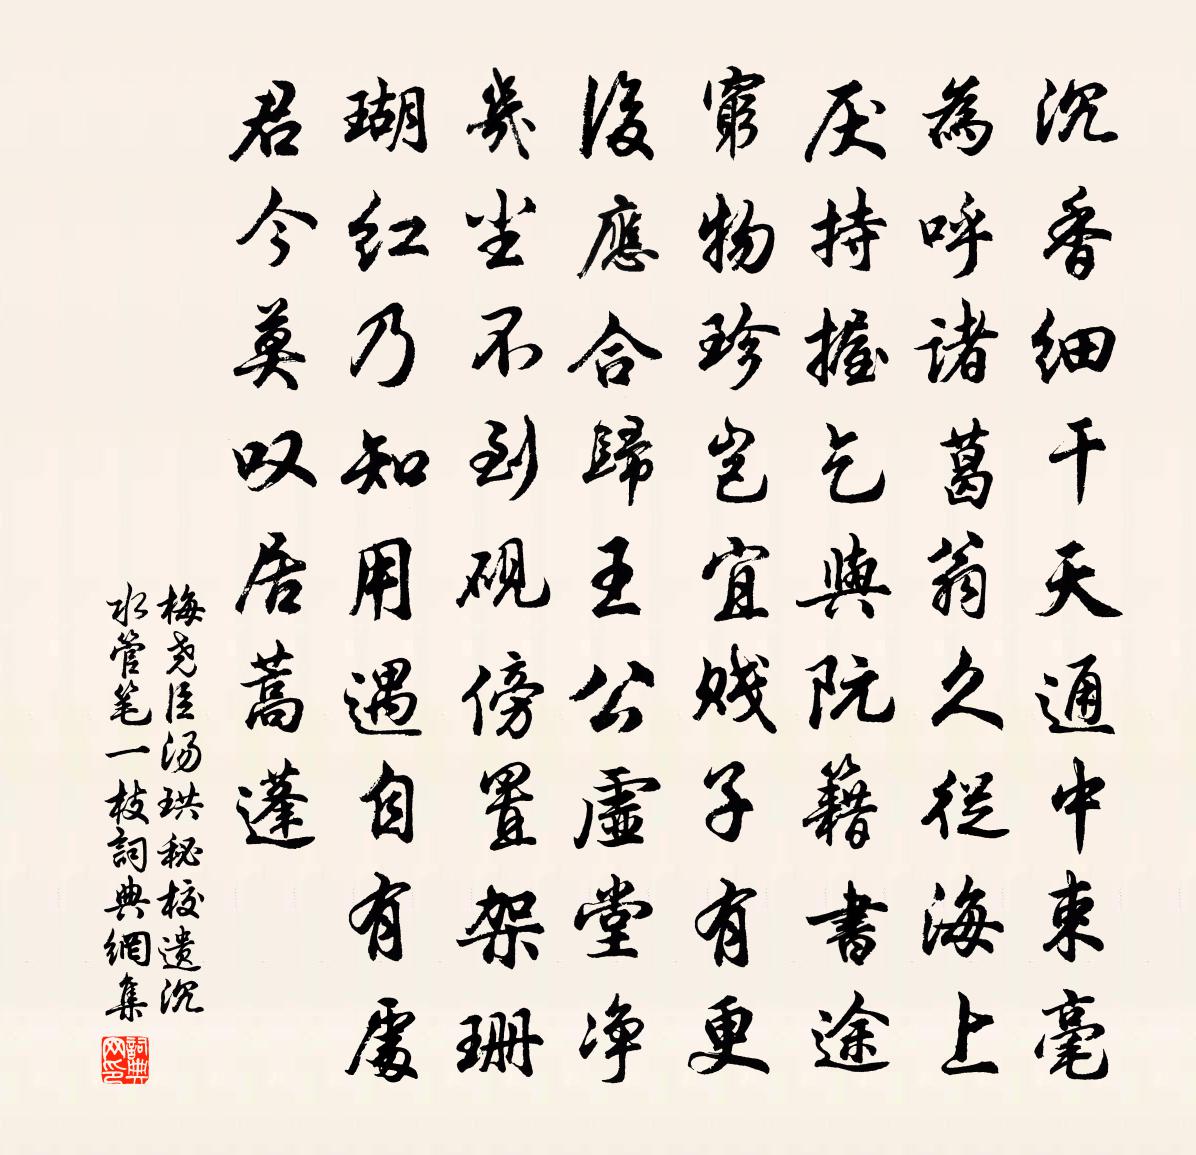 沉香细干天通中束毫
為呼諸葛翁久從海上
厌持握乞與阮籍書途
窮物珍豈宜贱子有更
後應合歸王公虛堂净
幾尘不到硯傍置架珊
瑚红乃知用遇自有處
君今莫叹居蒿蓬
梅尧臣汤珙秘校遗沉
水管笔一枝詞典網集
詞典网印